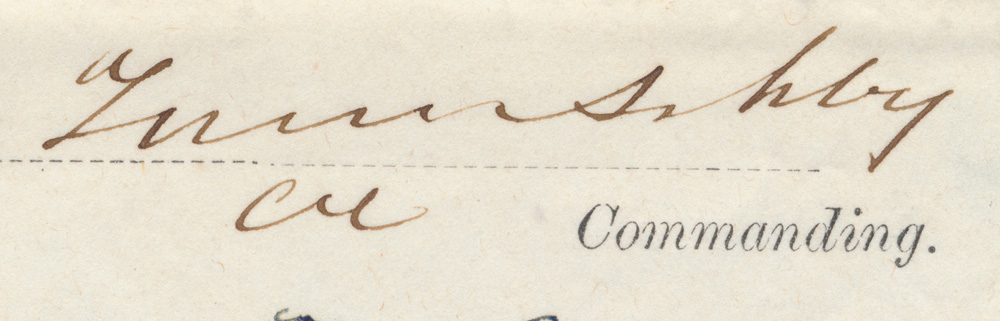 Turner Ashby
Col Commanding.